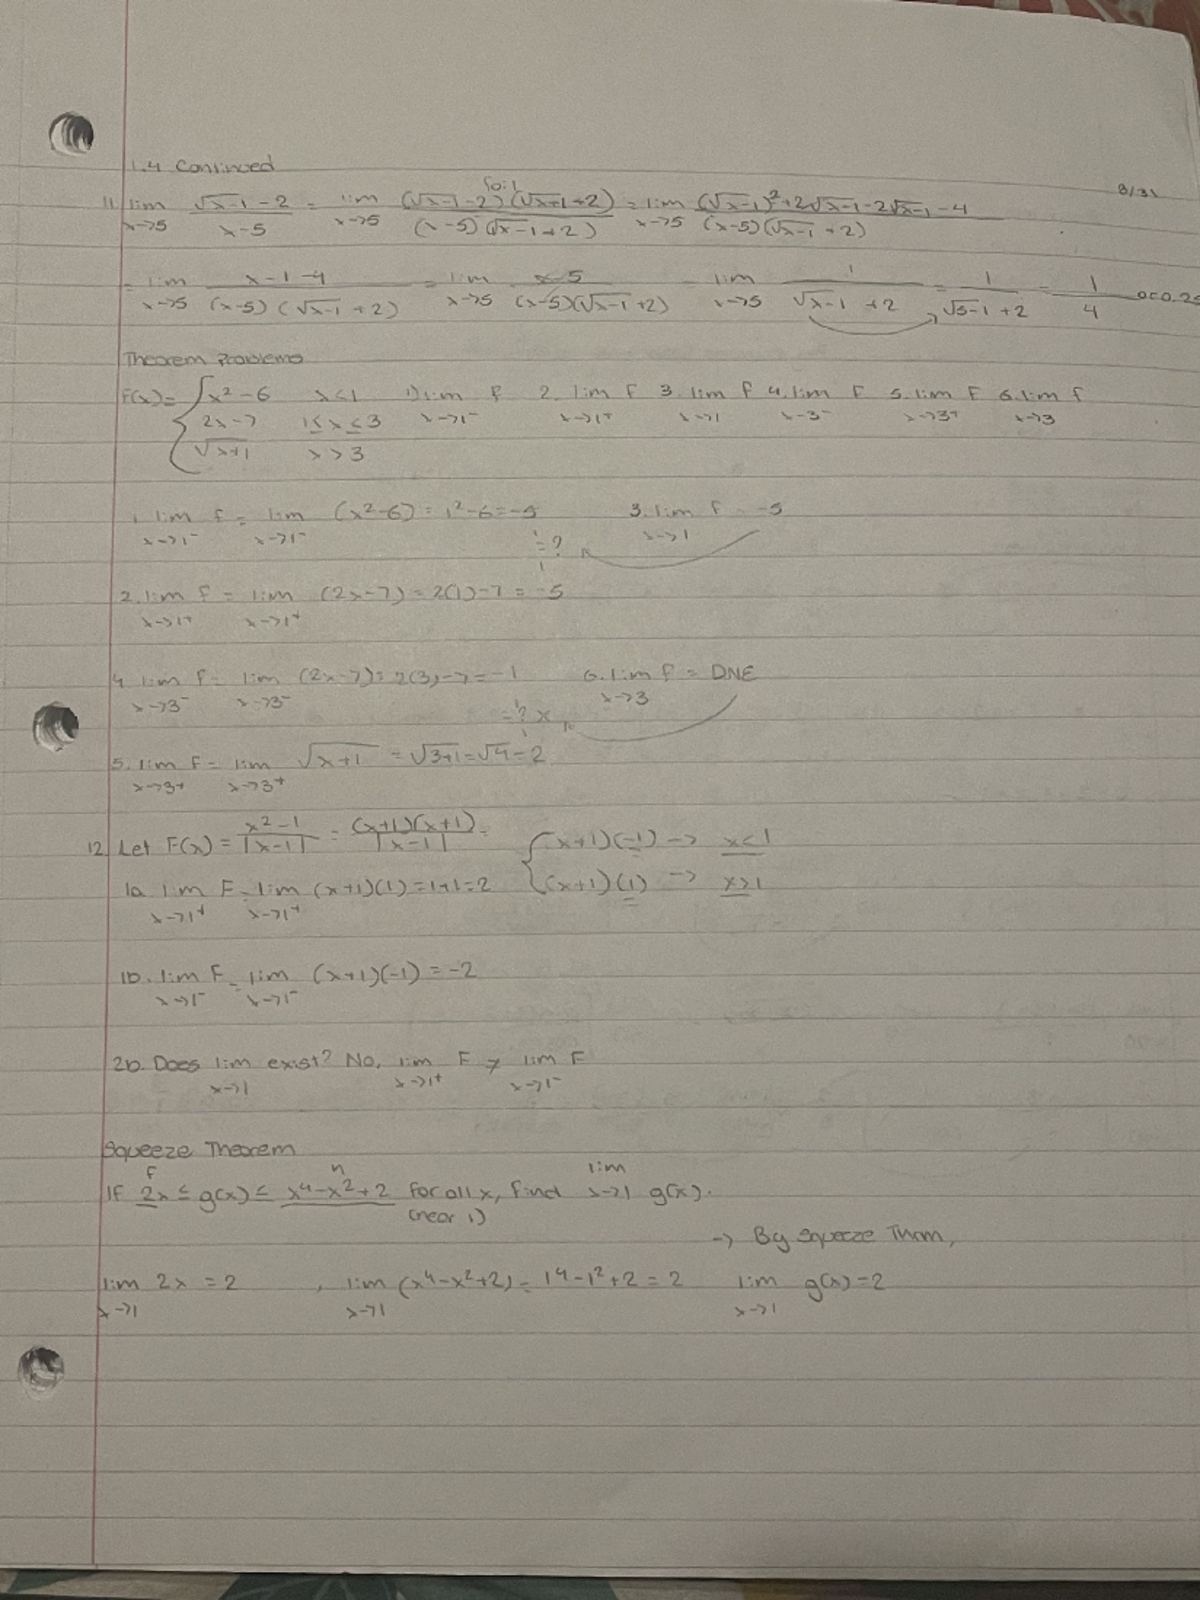 1.4 Continued
8/31
11. lim x→5 (√x-1 - 2)/(x-5) = lim x→5 (√x-1 - 2)(√x+1 + 2)/((x-5)(√x-1 + 2)) = lim x→5 ((√x-1)² + 2√x-1 - 2√x-1 - 4)/((x-5)(√x-1 + 2))
foil
= lim x→5 (x-1-4)/((x-5)(√x-1 + 2)) = lim x→5 (x-5)/((x-5)(√x-1 + 2)) = lim x→5 1/(√x-1 + 2) = 1/(√5-1 + 2) = 1/4 or 0.25
Theorem Problems
F(x) = { x²-6 x<1 1) lim x→1⁻ f 2. lim x→1⁺ f 3. lim x→1 f 4. lim x→3⁻ F 5. lim x→3⁺ F 6. lim x→3 f
2x-7 1≤x≤3
√x+1 x>3
1. lim x→1⁻ f = lim x→1⁻ (x²-6) = 1²-6 = -5 3. lim x→1 f = -5
=?
2. lim x→1⁺ f = lim x→1⁺ (2x-7) = 2(1)-7 = -5
4. lim x→3⁻ f = lim x→3⁻ (2x-7) = 2(3)-7 = -1 6. lim x→3 f = DNE
=? x
5. lim x→3⁺ F = lim x→3⁺ √x+1 = √3+1 = √4 = 2
12. Let F(x) = (x²-1)/|x-1| = (x+1)(x+1)/|x-1| = { (x+1)(-1) → x<1
1a. lim x→1⁺ F = lim x→1⁺ (x+1)(1) = 1+1 = 2 (x+1)(1) → x>1
1b. lim x→1⁻ F = lim x→1⁻ (x+1)(-1) = -2
2b. Does lim x→1 exist? No, lim x→1⁺ F ≠ lim x→1⁻ F
Squeeze Theorem
f h
If 2x ≤ g(x) ≤ x⁴-x²+2 for all x, find lim x→1 g(x).
(near 1)
→ By squeeze Thrm,
lim x→1 2x = 2, lim x→1 (x⁴-x²+2) = 1⁴-1²+2 = 2 lim x→1 g(x) = 2